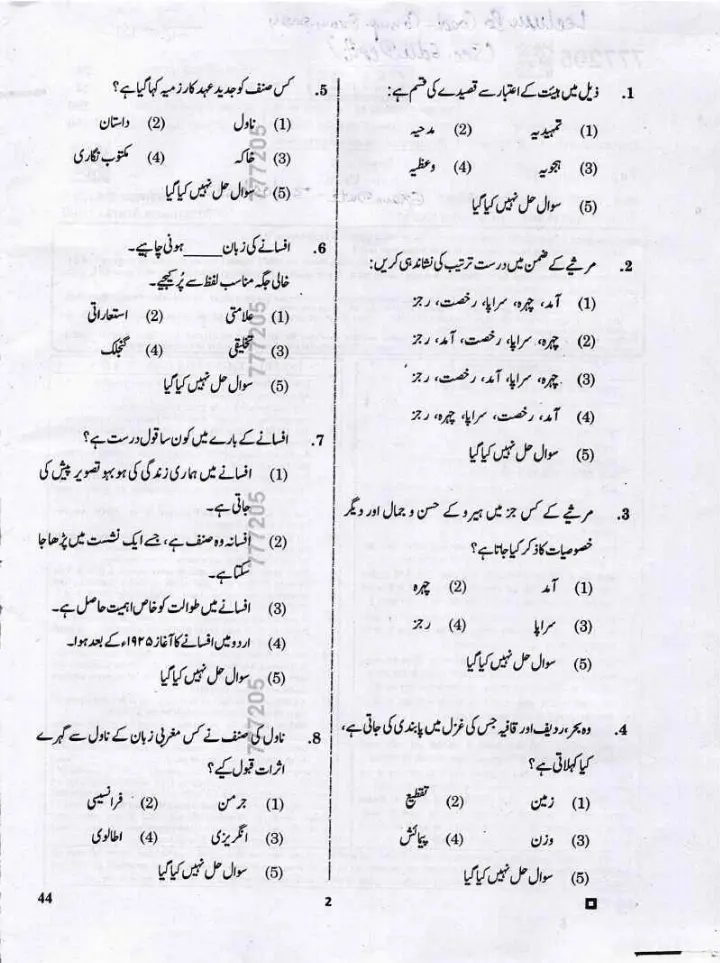 1. ذیل میں ہیئت کے اعتبار سے قصیدے کی قسم ہے:
(1) تمہیدیہ (2) مدحیہ
(3) ہجویہ (4) وعظیہ
(5) سوال حل نہیں کیا گیا
2. مرثیے کے ضمن میں درست ترتیب کی نشاندہی کریں:
(1) آمد، چہرہ، سراپا، رخصت، رجز
(2) چہرہ، سراپا، رخصت، آمد، رجز
(3) چہرہ، سراپا، آمد، رخصت، رجز
(4) آمد، رخصت، سراپا، چہرہ، رجز
(5) سوال حل نہیں کیا گیا
3. مرثیے کے کس جز میں ہیرو کے حسن و جمال اور دیگر
خصوصیات کا ذکر کیا جاتا ہے؟
(1) آمد (2) چہرہ
(3) سراپا (4) رجز
(5) سوال حل نہیں کیا گیا
4. وہ بحر، ردیف اور قافیہ جس کی غزل میں پابندی کی جاتی ہے،
کیا کہلاتی ہے؟
(1) زمین (2) تقطیع
(3) وزن (4) پیمائش
(5) سوال حل نہیں کیا گیا
5. کس صنف کو جدید عہد کا رزمیہ کہا گیا ہے؟
(1) ناول (2) داستان
(3) خاکہ (4) مکتوب نگاری
(5) سوال حل نہیں کیا گیا
6. افسانے کی زبان _____ ہونی چاہیے۔
خالی جگہ مناسب لفظ سے پُر کیجیے۔
(1) علامتی (2) استعاراتی
(3) تخلیقی (4) گنجلک
(5) سوال حل نہیں کیا گیا
7. افسانے کے بارے میں کون سا قول درست ہے؟
(1) افسانے میں ہماری زندگی کی ہو بہو تصویر پیش کی
جاتی ہے۔
(2) افسانہ وہ صنف ہے، جسے ایک نشست میں پڑھا جا
سکتا ہے۔
(3) افسانے میں طوالت کو خاص اہمیت حاصل ہے۔
(4) اردو میں افسانے کا آغاز ۱۹۲۵ء کے بعد ہوا۔
(5) سوال حل نہیں کیا گیا
8. ناول کی صنف نے کس مغربی زبان کے ناول سے گہرے
اثرات قبول کیے؟
(1) جرمن (2) فرانسیسی
(3) انگریزی (4) اطالوی
(5) سوال حل نہیں کیا گیا
777205
777205
777205
777205
44
2